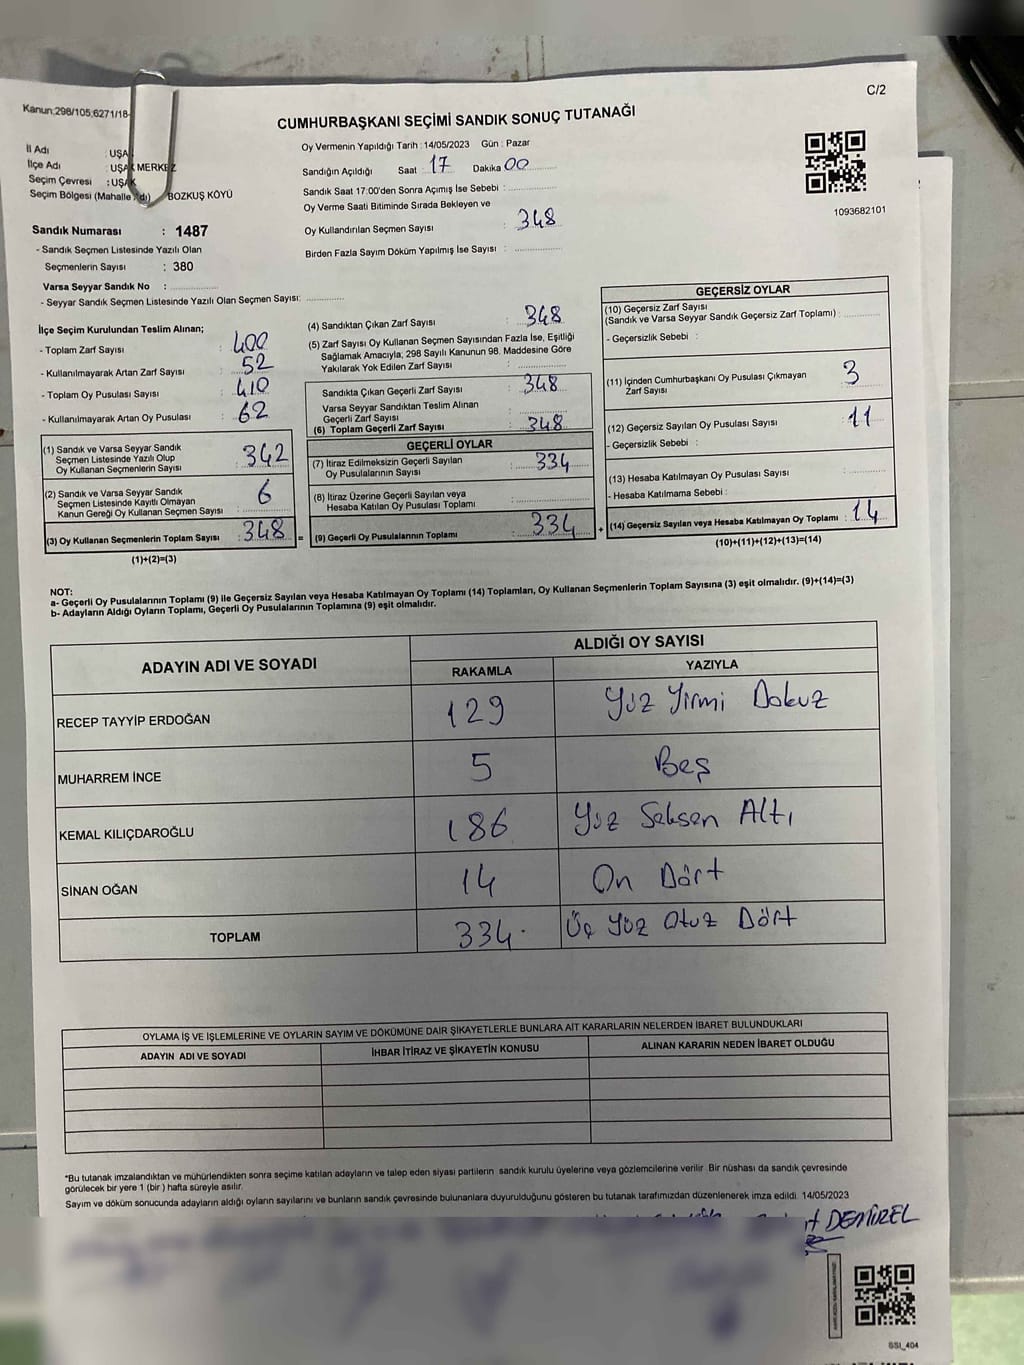 C/2
Kanun:298/105,6271/18-
CUMHURBAŞKANI SEÇİMİ SANDIK SONUÇ TUTANAĞI
İl Adı : UŞA
İlçe Adı : UŞAK MERKEZ
Seçim Çevresi : UŞAK
Seçim Bölgesi (Mahalle Adı) BOZKUŞ KÖYÜ
Sandık Numarası : 1487
- Sandık Seçmen Listesinde Yazılı Olan
Seçmenlerin Sayısı : 380
Varsa Seyyar Sandık No :
- Seyyar Sandık Seçmen Listesinde Yazılı Olan Seçmen Sayısı:
Oy Vermenin Yapıldığı Tarih : 14/05/2023 Gün : Pazar
Sandığın Açıldığı Saat 17 Dakika 00
Sandık Saat 17:00'den Sonra Açımış İse Sebebi :
Oy Verme Saati Bitiminde Sırada Bekleyen ve
Oy Kullandırılan Seçmen Sayısı : 348
Birden Fazla Sayım Döküm Yapılmış İse Sayısı :
1093682101
İlçe Seçim Kurulundan Teslim Alınan;
- Toplam Zarf Sayısı : 400
- Kullanılmayarak Artan Zarf Sayısı : 52
- Toplam Oy Pusulası Sayısı : 410
- Kullanılmayarak Artan Oy Pusulası : 62
(1) Sandık ve Varsa Seyyar Sandık
Seçmen Listesinde Yazılı Olup
Oy Kullanan Seçmenlerin Sayısı : 342
(2) Sandık ve Varsa Seyyar Sandık
Seçmen Listesinde Kayıtlı Olmayan
Kanun Gereği Oy Kullanan Seçmen Sayısı : 6
(3) Oy Kullanan Seçmenlerin Toplam Sayısı : 348 =
(1)+(2)=(3)
(4) Sandıktan Çıkan Zarf Sayısı : 348
(5) Zarf Sayısı Oy Kullanan Seçmen Sayısından Fazla İse, Eşitliği
Sağlamak Amacıyla; 298 Sayılı Kanunun 98. Maddesine Göre
Yakılarak Yok Edilen Zarf Sayısı :
Sandıkta Çıkan Geçerli Zarf Sayısı : 348
Varsa Seyyar Sandıktan Teslim Alınan
Geçerli Zarf Sayısı :
(6) Toplam Geçerli Zarf Sayısı : 348
GEÇERLİ OYLAR
(7) İtiraz Edilmeksizin Geçerli Sayılan
Oy Pusulalarının Sayısı : 334
(8) İtiraz Üzerine Geçerli Sayılan veya
Hesaba Katılan Oy Pusulası Toplamı :
(9) Geçerli Oy Pusulalarının Toplamı : 334 +
GEÇERSİZ OYLAR
(10) Geçersiz Zarf Sayısı
(Sandık ve Varsa Seyyar Sandık Geçersiz Zarf Toplamı) :
- Geçersizlik Sebebi :
(11) İçinden Cumhurbaşkanı Oy Pusulası Çıkmayan
Zarf Sayısı : 3
(12) Geçersiz Sayılan Oy Pusulası Sayısı : 11
- Geçersizlik Sebebi :
(13) Hesaba Katılmayan Oy Pusulası Sayısı :
- Hesaba Katılmama Sebebi :
(14) Geçersiz Sayılan veya Hesaba Katılmayan Oy Toplamı : 14
(10)+(11)+(12)+(13)=(14)
NOT:
a- Geçerli Oy Pusulalarının Toplamı (9) ile Geçersiz Sayılan veya Hesaba Katılmayan Oy Toplamı (14) Toplamları, Oy Kullanan Seçmenlerin Toplam Sayısına (3) eşit olmalıdır. (9)+(14)=(3)
b- Adayların Aldığı Oyların Toplamı, Geçerli Oy Pusulalarının Toplamına (9) eşit olmalıdır.
ADAYIN ADI VE SOYADI ALDIĞI OY SAYISI
RAKAMLA YAZIYLA
RECEP TAYYİP ERDOĞAN 129 Yüz Yirmi Dokuz
MUHARREM İNCE 5 Beş
KEMAL KILIÇDAROĞLU 186 Yüz Seksen Altı
SİNAN OĞAN 14 On Dört
TOPLAM 334 Üç Yüz Otuz Dört
OYLAMA İŞ VE İŞLEMLERİNE VE OYLARIN SAYIM VE DÖKÜMÜNE DAİR ŞİKAYETLERLE BUNLARA AİT KARARLARIN NELERDEN İBARET BULUNDUKLARI
ADAYIN ADI VE SOYADI İHBAR İTİRAZ VE ŞİKAYETİN KONUSU ALINAN KARARIN NEDEN İBARET OLDUĞU
*Bu tutanak imzalandıktan ve mühürlendikten sonra seçime katılan adayların ve talep eden siyasi partilerin sandık kurulu üyelerine veya gözlemcilerine verilir. Bir nüshası da sandık çevresinde
görülecek bir yere 1 (bir) hafta süreyle asılır.
Sayım ve döküm sonucunda adayların aldığı oyların sayılarını ve bunların sandık çevresinde bulunanlara duyurulduğunu gösteren bu tutanak tarafımızdan düzenlenerek imza edildi. 14/05/2023
DEMİREL
SSI_404